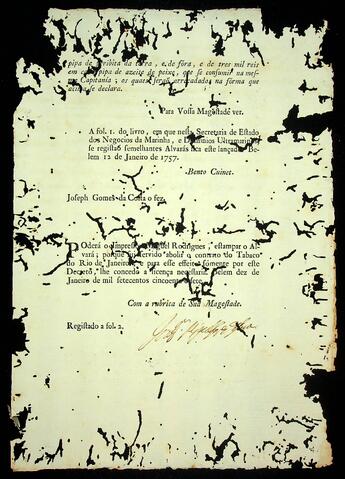 pipa de giribita da terra, e de fóra, e de tres mil reis
em cada pipa de azeite de peixe, que se consumir na mes-
ma Capitania; os quaes serão arrecadados na fórma que
acima se declara.
Para Vossa Magestade ver.
A fol. 1. do livro, em que nesta Secretaria de Estado
dos Negocios da Marinha, e Dominios Ultramarinos
se registão semelhantes Alvarás fica este lançado. Be-
lem 12 de Janeiro de 1757.
Bento Cuinet.
Joseph Gomes da Costa o fez.
Poderá o Impressor Miguel Rodrigues, estampar o Al-
vará; porque fui servido abolir o contrato do Tabaco
do Rio de Janeiro; e para esse effeito sómente por este
Decreto, lhe concedo a licença necessaria. Belem dez de
Janeiro de mil setecentos cincoenta e sete.
Com a rubrica de Sua Magestade.
Registado a fol. 2.